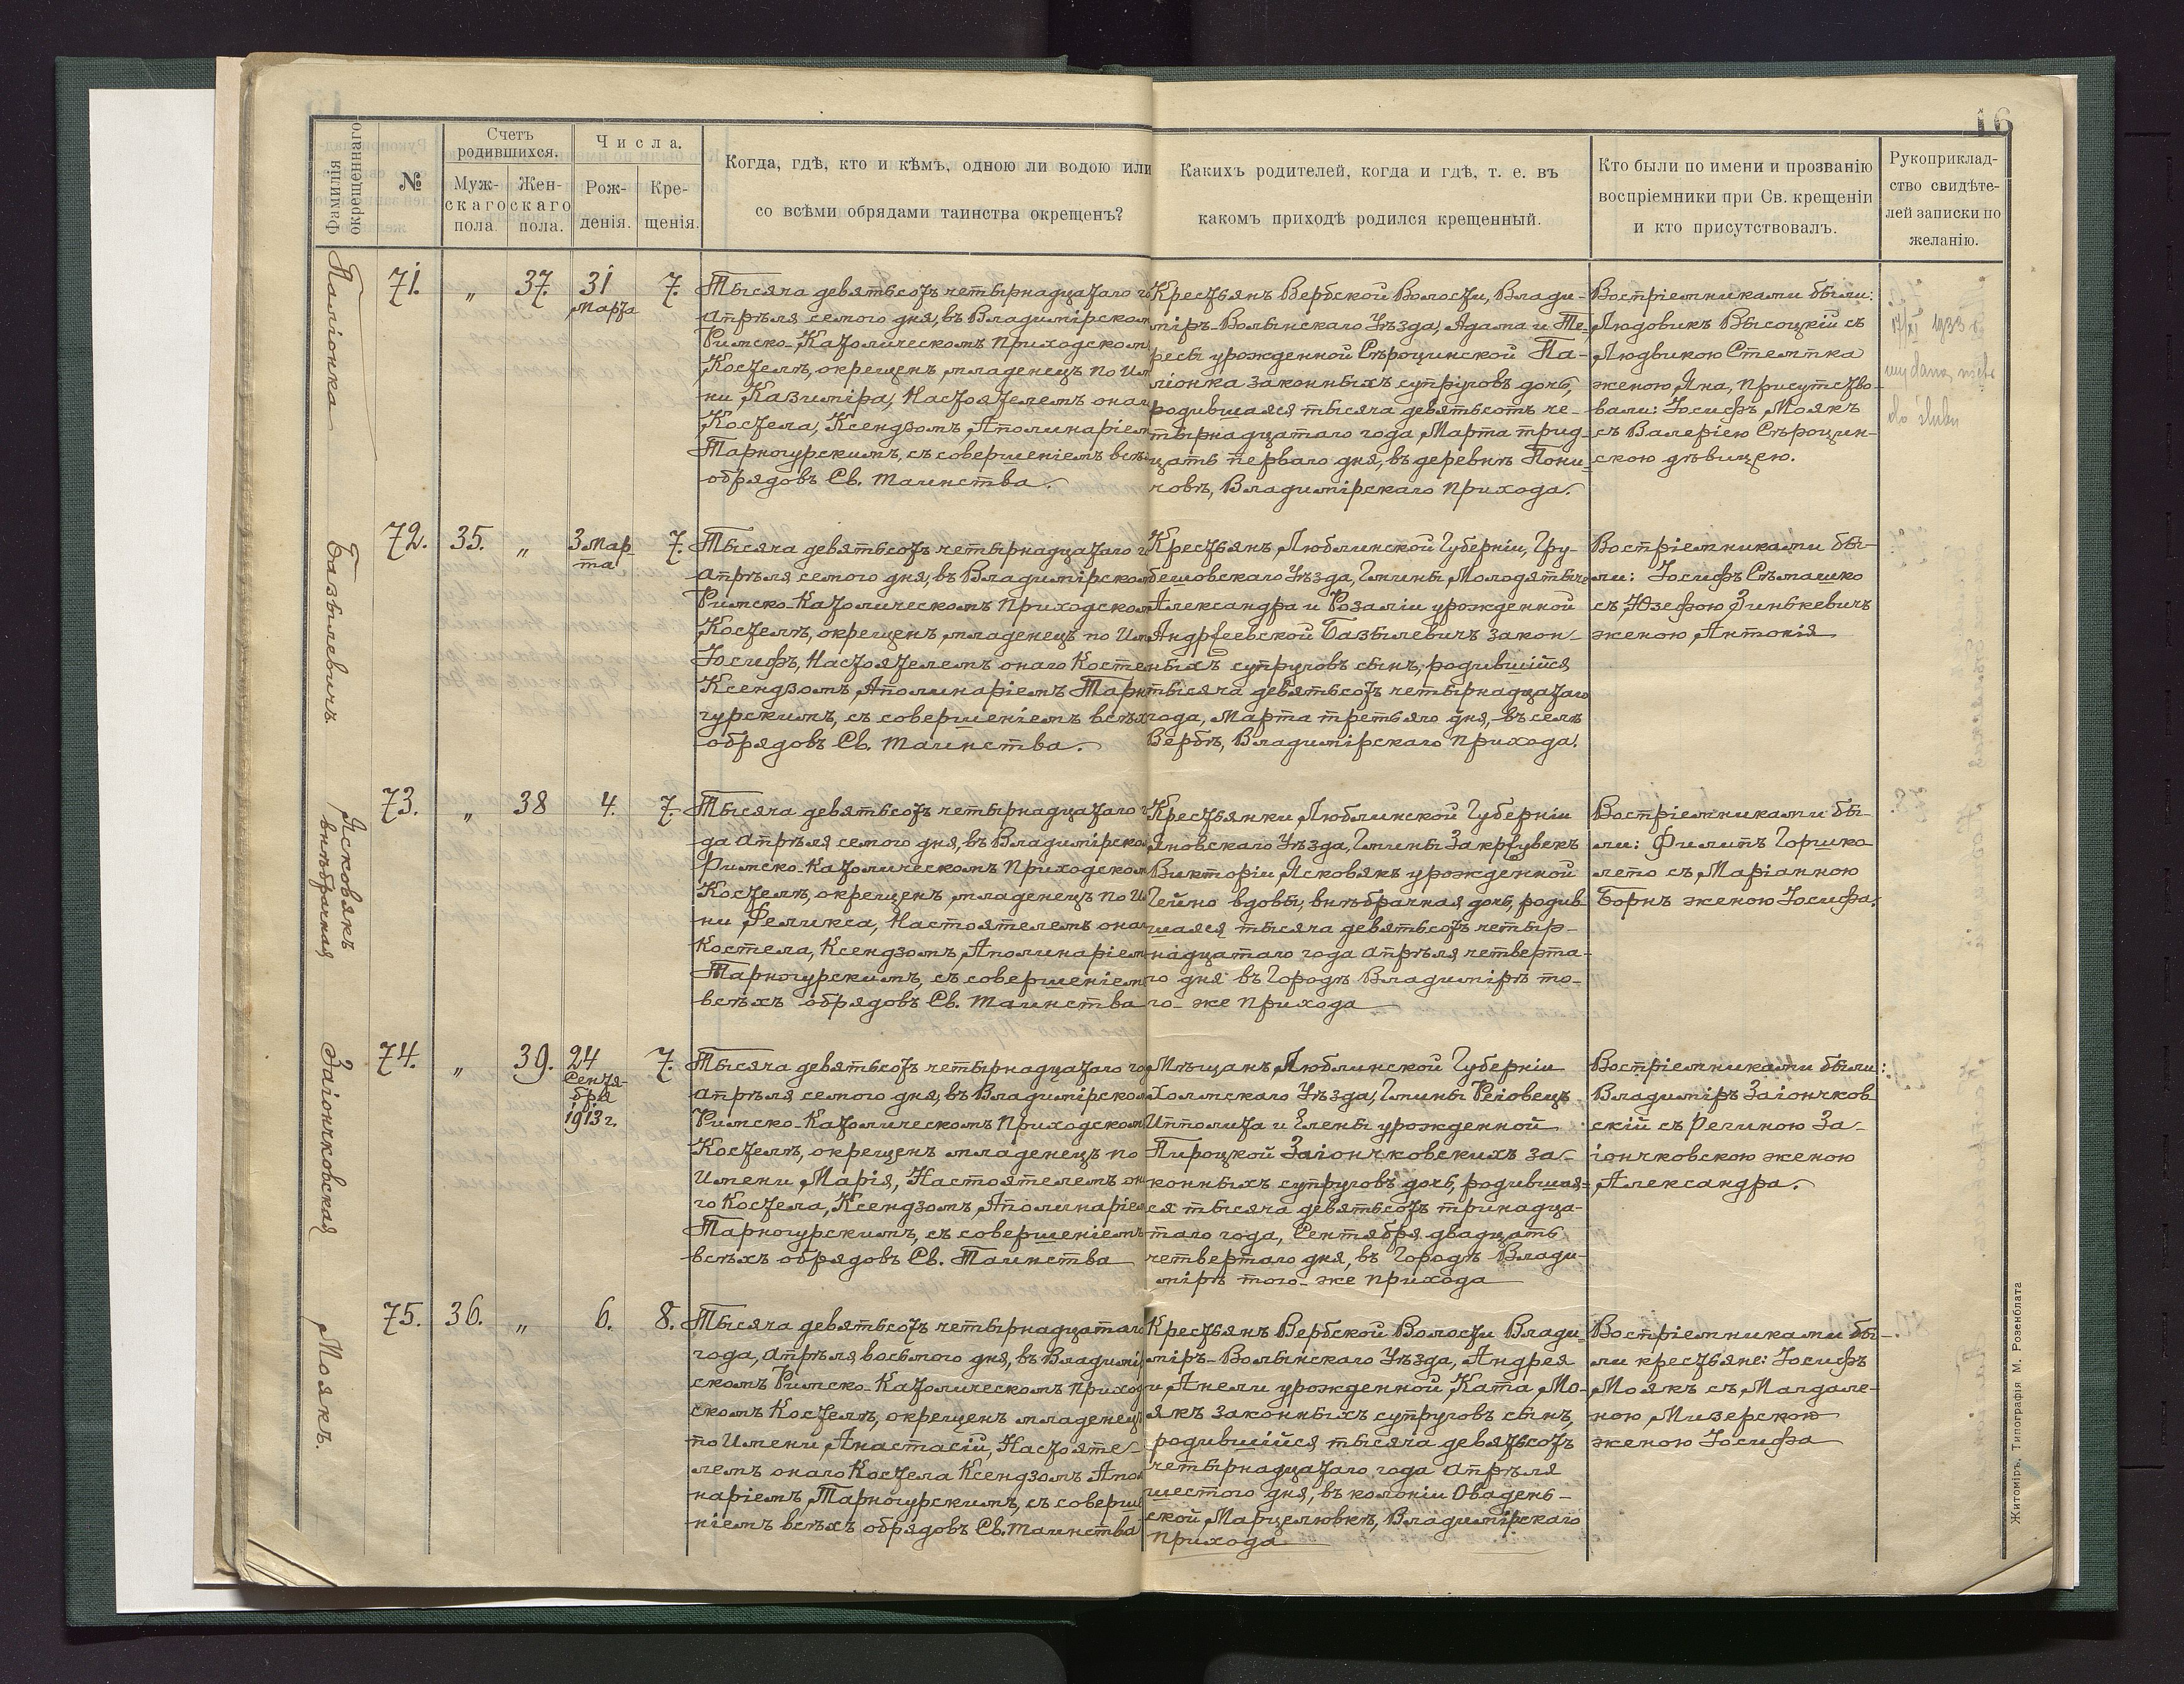 16
Фамилія окрещеннаго
№
Счетъ родившихся.
Мужскаго пола.
Женскаго пола.
Числа.
Рожденія.
Крещенія.
Когда, гдѣ, кто и кѣмъ, одною ли водою или
со всѣми обрядами таинства окрещенъ?
Какихъ родителей, когда и гдѣ, т. е. въ
какомъ приходѣ родился крещенный.
Кто были по имени и прозванію
воспріемники при Св. крещеніи
и кто присутствовалъ.
Рукоприклад-
ство свидѣте-
лей записки по
желанію.
Паліонка
71.
„
37.
31
Марта
7.
Тысяча девятьсотъ четырнадцатаго го
апрѣля седмого дня, въ Владимірском
Римско-Католическомъ Приходском
Костелѣ, окрещенъ младенецъ по Им
ни Казиміра, Настоятелемъ онаг
Костела, Ксендзомъ Аполинаріем
Тарногурскимъ, съ совершеніемъ всѣ
обрядовъ Св. таинства.
Крестьянъ Вербской Волости, Влади-
міръ-Волынскаго Уѣзда, Адама и Те-
ресы урожденной Сѣроцинской Па-
ліонка законныхъ супруговъ дочь,
родившаяся тысяча девятьсотъ че-
тырнадцатаго года Марта трид-
цать перваго дня, въ деревнѣ Пони-
човѣ, Владимірскаго прихода.
Воспріемниками были:
Людовикъ Высоцкій съ
Людвикою Стемтка
женою Яна, присутство-
вали: Іосифъ Моякъ
съ Валеріею Сѣроцин-
скою дѣвицею.
17/XI 1933 r
wydano
do ślubu
Базылевичъ
72.
35.
„
3 Мар
та
7.
Тысяча девятьсотъ четырнадцатаго г
апрѣля седмого дня, въ Владимірском
Римско-Католическомъ Приходском
Костелѣ, окрещенъ младенецъ по Им
Іосифъ, Настоятелемъ онаго Косте
Ксендзомъ Аполинаріемъ Тарн
гурскимъ, съ совершеніемъ всѣх
обрядовъ Св. таинства.
Крестьянъ Люблинской Губерніи, Гру-
бешовскаго Уѣзда, Гмины Молодятыче
Александра и Розаліи урожденной
Андреевской Базылевичъ закон-
ныхъ супруговъ сынъ, родившійся
тысяча девятьсотъ четырнадцатаго
года, Марта третьяго дня, въ селѣ
Вербѣ, Владимірскаго прихода.
Воспріемниками бы-
ли: Іосифъ Сѣмашко
съ Юзефою Зинькевичъ
женою Антонія
Ясковякъ
внѣбрачная
73.
„
38
4.
7.
Тысяча девятьсотъ четырнадцатаго г
да апрѣля седмого дня, въ Владимірско
Римско-Католическомъ Приходском
Костелѣ, окрещенъ младенецъ по И
ни Феликса, Настоятелемъ она
Костела, Ксендзомъ Аполинаріем
Тарногурскимъ, съ совершеніем
всѣхъ обрядовъ Св. таинства
Крестьянки Люблинской Губерніи
Яновскаго Уѣзда, Гмины Закржувекъ
Викторіи Ясковякъ урожденной
Гейно вдовы, внѣбрачная дочь, родив-
шаяся тысяча девятьсотъ четыр-
надцатаго года апрѣля четверта-
го дня въ Городѣ Владимірѣ то-
го-же прихода
Воспріемниками бы-
ли: Филипъ Горшко
лето съ Маріанною
Борнъ женою Іосифа.
Заіончковская
74.
„
39.
24
Сентя-
бря
1913 г.
7.
Тысяча девятьсотъ четырнадцатаго го
апрѣля седмого дня, въ Владимірском
Римско-Католическомъ Приходском
Костелѣ, окрещенъ младенецъ по
Имени Марія, Настоятелемъ он
го Костела, Ксендзомъ Аполинаріе
Тарногурскимъ, съ совершеніемъ
всѣхъ обрядовъ Св. Таинства
Мѣщанъ Люблинской Губерніи
Холмскаго Уѣзда, Гмины Реіовецъ
Ипполита и Елены урожденной
Пироцкой Заіончковскихъ за-
конныхъ супруговъ дочь, родившая-
ся тысяча девятьсотъ тринадца-
таго года, Сентября двадцать
четвертаго дня, въ Городѣ Влади-
мірѣ того-же прихода
Воспріемниками были:
Владиміръ Заіончков
скій съ Региною За-
іончковскою женою
Александра.
Моякъ.
75.
36.
„
6.
8.
Тысяча девятьсотъ четырнадцатаго
года, апрѣля восьмого дня, въ Владимі
скомъ Римско-Католическомъ приход
скомъ Костелѣ, окрещенъ младенец
по Имени Анастасій, Настояте-
лемъ онаго Костела Ксендзомъ Апол
наріемъ Тарногурскимъ, съ соверше
ніемъ всѣхъ обрядовъ Св. таинства
Крестьянъ Вербской Волости Влади-
міръ-Волынскаго Уѣзда, Андрея
и Анели урожденной Ката Мо-
якъ законныхъ супруговъ сынъ,
родившійся тысяча девятьсотъ
четырнадцатаго года апрѣля
шестого дня, въ колоніи Овадень-
ской Марцелювкѣ, Владимірскаго
прихода
Воспріемниками бы-
ли крестьяне: Іосифъ
Моякъ съ Магдале-
ною Мизерскою
женою Іосифа
Житоміръ. Типографія М. Розенблата